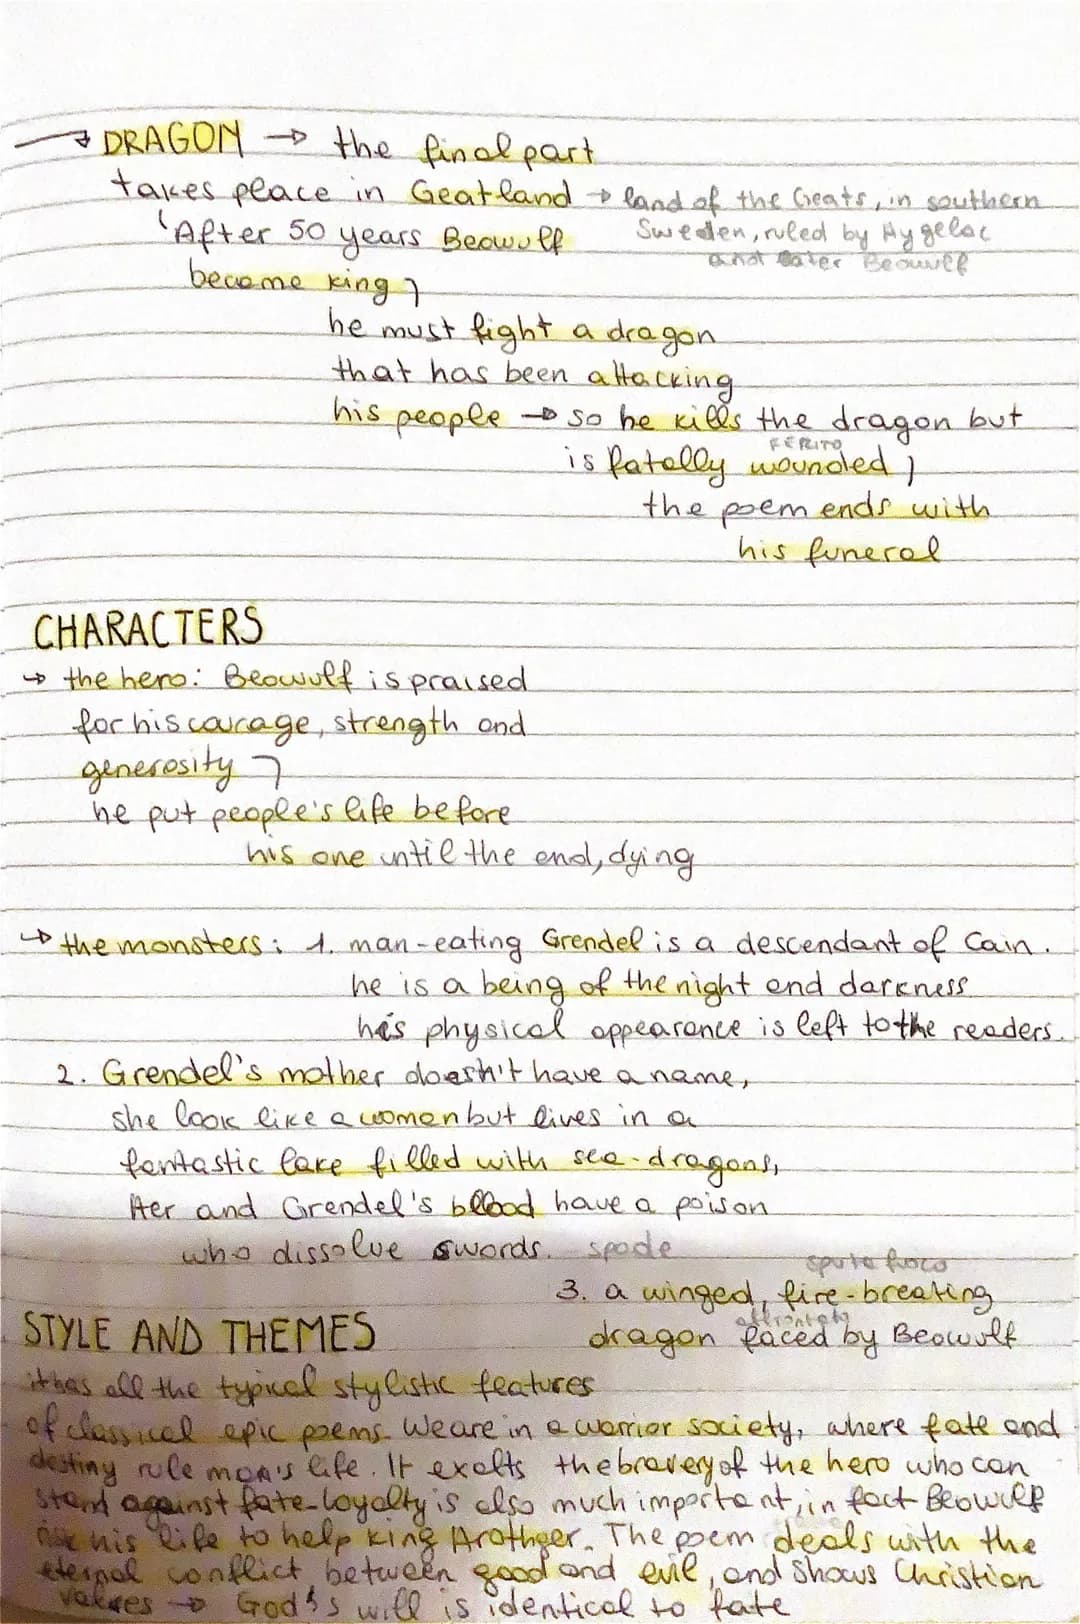 → DRAGON → the final part
takes place in Geatland → land of the Geats, in southern
After 50 years Beowulf Sweden, ruled by Hygelac
and later Beowulf
become king
he must fight a dragon
that has been attacking
his people → so he kills the dragon but
FERITO
is fatally wounded
the poem ends with
his funeral
CHARACTERS
→ the hero: Beowulf is praised
for his courage, strength and
generosity
he put people's life before
his one until the end, dying
→ the monsters: 1. man-eating Grendel is a descendant of Cain.
he is a being of the night and darkness
his physical appearance is left to the readers.
2. Grendel's mother doesn't have a name,
she look like a woman but lives in a
fantastic lake filled with sea-dragons,
Her and Grendel's blood have a poison
who dissolve swords. spade
sputa fuoco
3. a winged, fire-breating
affrontato
dragon faced by Beowulf
STYLE AND THEMES
it has all the typical stylistic features
of classical epic poems. We are in a warrior society, where fate and
destiny rule man's life. It exalts the bravery of the hero who can
stand against fate-loyalty is also much important, in fact Beowulf
his life to help king . The poem deals with the
eternal conflict between good and evil, and shows Christian
values → God's will is identical to fate